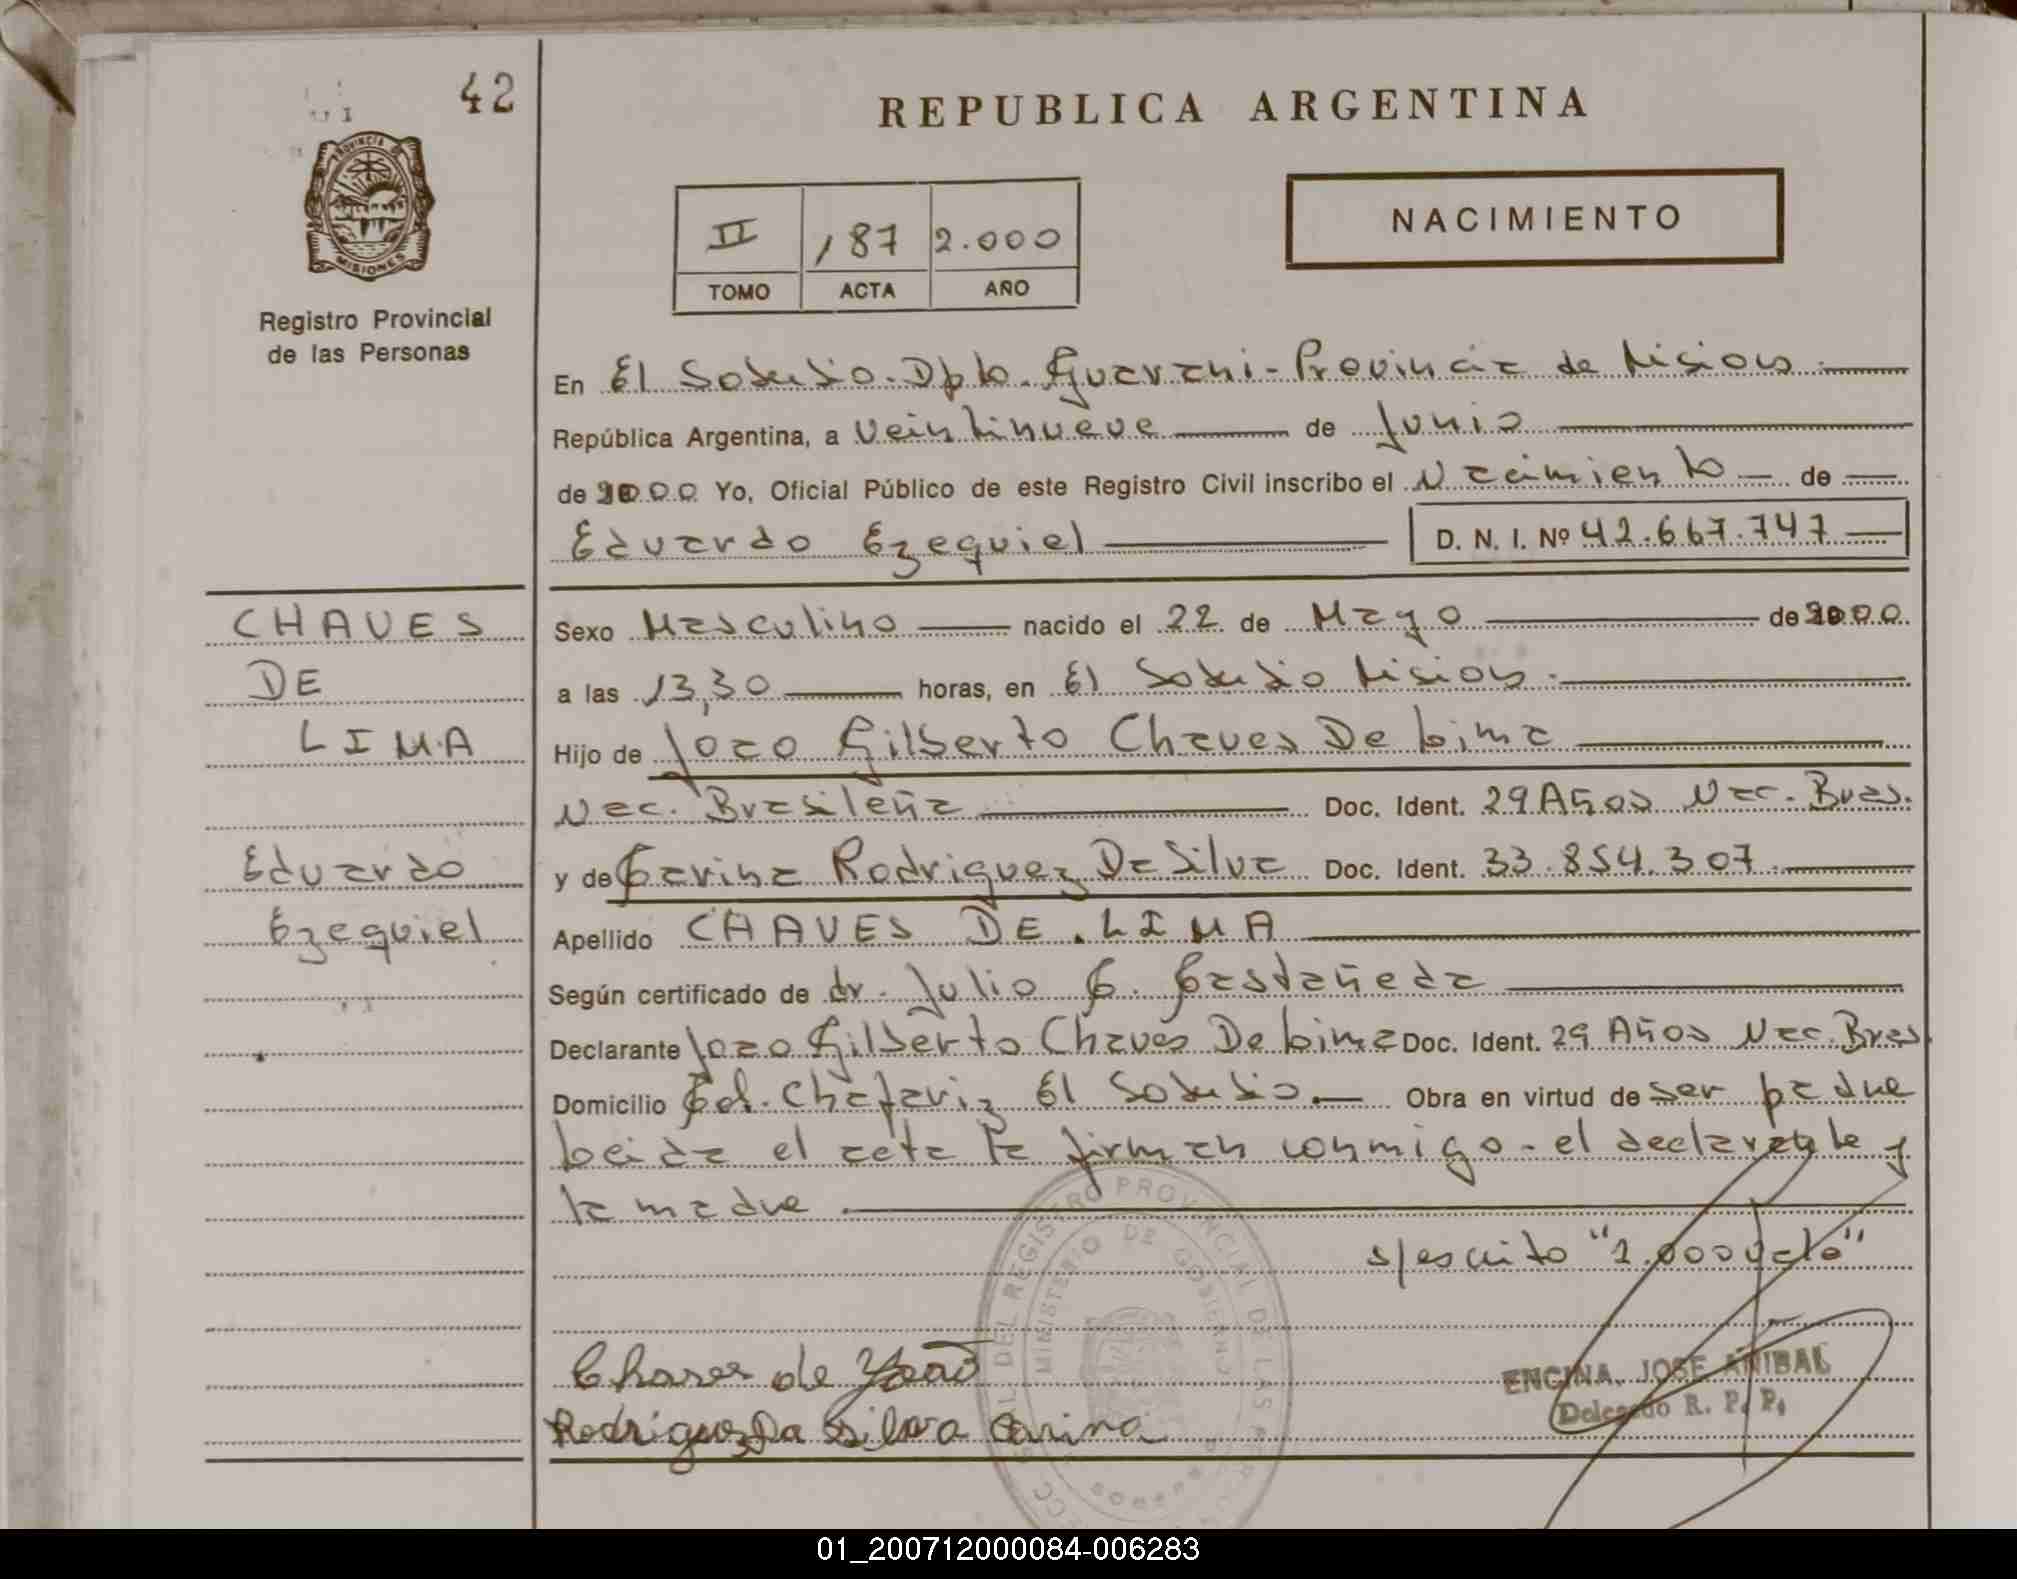 42
REPUBLICA ARGENTINA
PROVINCIA DE
MISIONES
Registro Provincial
de las Personas
II 187 2.000
TOMO ACTA AÑO
NACIMIENTO
En El Soberbio. Dpto. Guarani - Provincia de Misiones.
República Argentina, a veintinueve de Junio
de 2000 Yo, Oficial Público de este Registro Civil inscribo el Nacimiento de
Eduardo Ezequiel D. N. I. Nº 42.667.747
CHAVES
DE
LIMA
Eduardo
Ezequiel
Sexo Masculino nacido el 22 de Mayo de 2000
a las 13,30 horas, en El Soberbio Misiones.
Hijo de Joao Gilberto Chaves De Lima
Nac. Brasileña Doc. Ident. 29 Años Nac. Bras.
y de Carina Rodriguez Da Silva Doc. Ident. 33.854.307.
Apellido CHAVES DE LIMA
Según certificado de dr. Julio C. Castañeda
Declarante Joao Gilberto Chaves De Lima Doc. Ident. 29 Años Nac. Bras.
Domicilio Col. Chafariz El Soberbio. Obra en virtud de ser padre
Leida el acta la firman conmigo - el declarante y
la madre
s/escrito "2.000
Chaves de Joao
Rodriguez Da Silva Carina
ENCINA, JOSE ANIBAL
Delegado R. P. P.
DEL REGISTRO PROVINCIAL DE LAS
MINISTERIO DE GOBIERNO
01_200712000084-006283